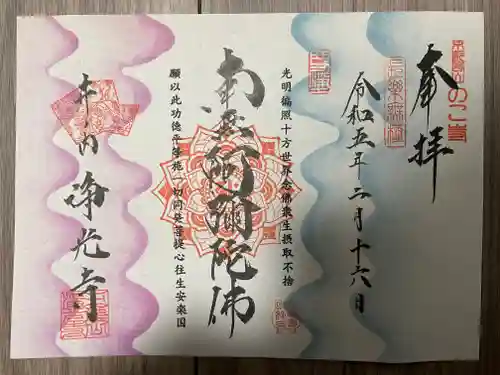 奉拝
令和五年二月十六日
光明徧照十方世界念佛衆生摂取不捨
南無阿弥陀佛
願以此功徳平等施一切同発菩提心往生安楽国
浄光寺